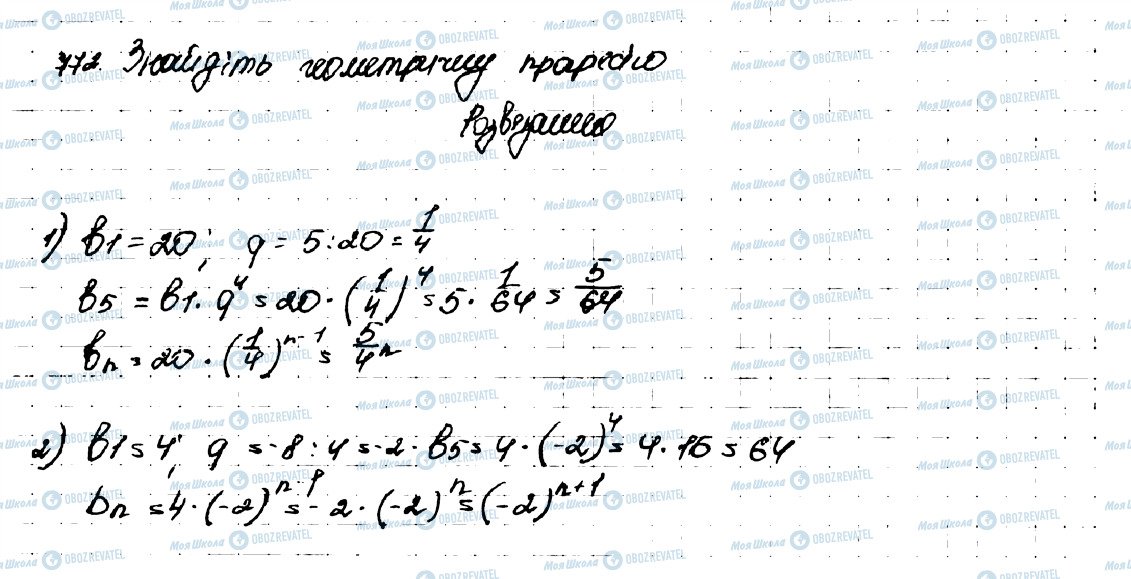 772. Знайдіть геометричну прогресію
Розв'язання
1) b1 = 20; q = 5 : 20 = 1/4
b5 = b1 · q^4 = 20 · (1/4)^4 = 5 · 1/64 = 5/64
bn = 20 · (1/4)^(n-1) = 5/4^n
2) b1 = 4; q = -8 : 4 = -2 · b5 = 4 · (-2)^4 = 4 · 16 = 64
bn = 4 · (-2)^(n-1) = -2 · (-2)^n = (-2)^(n+1)
Моя Школа OBOZREVATEL